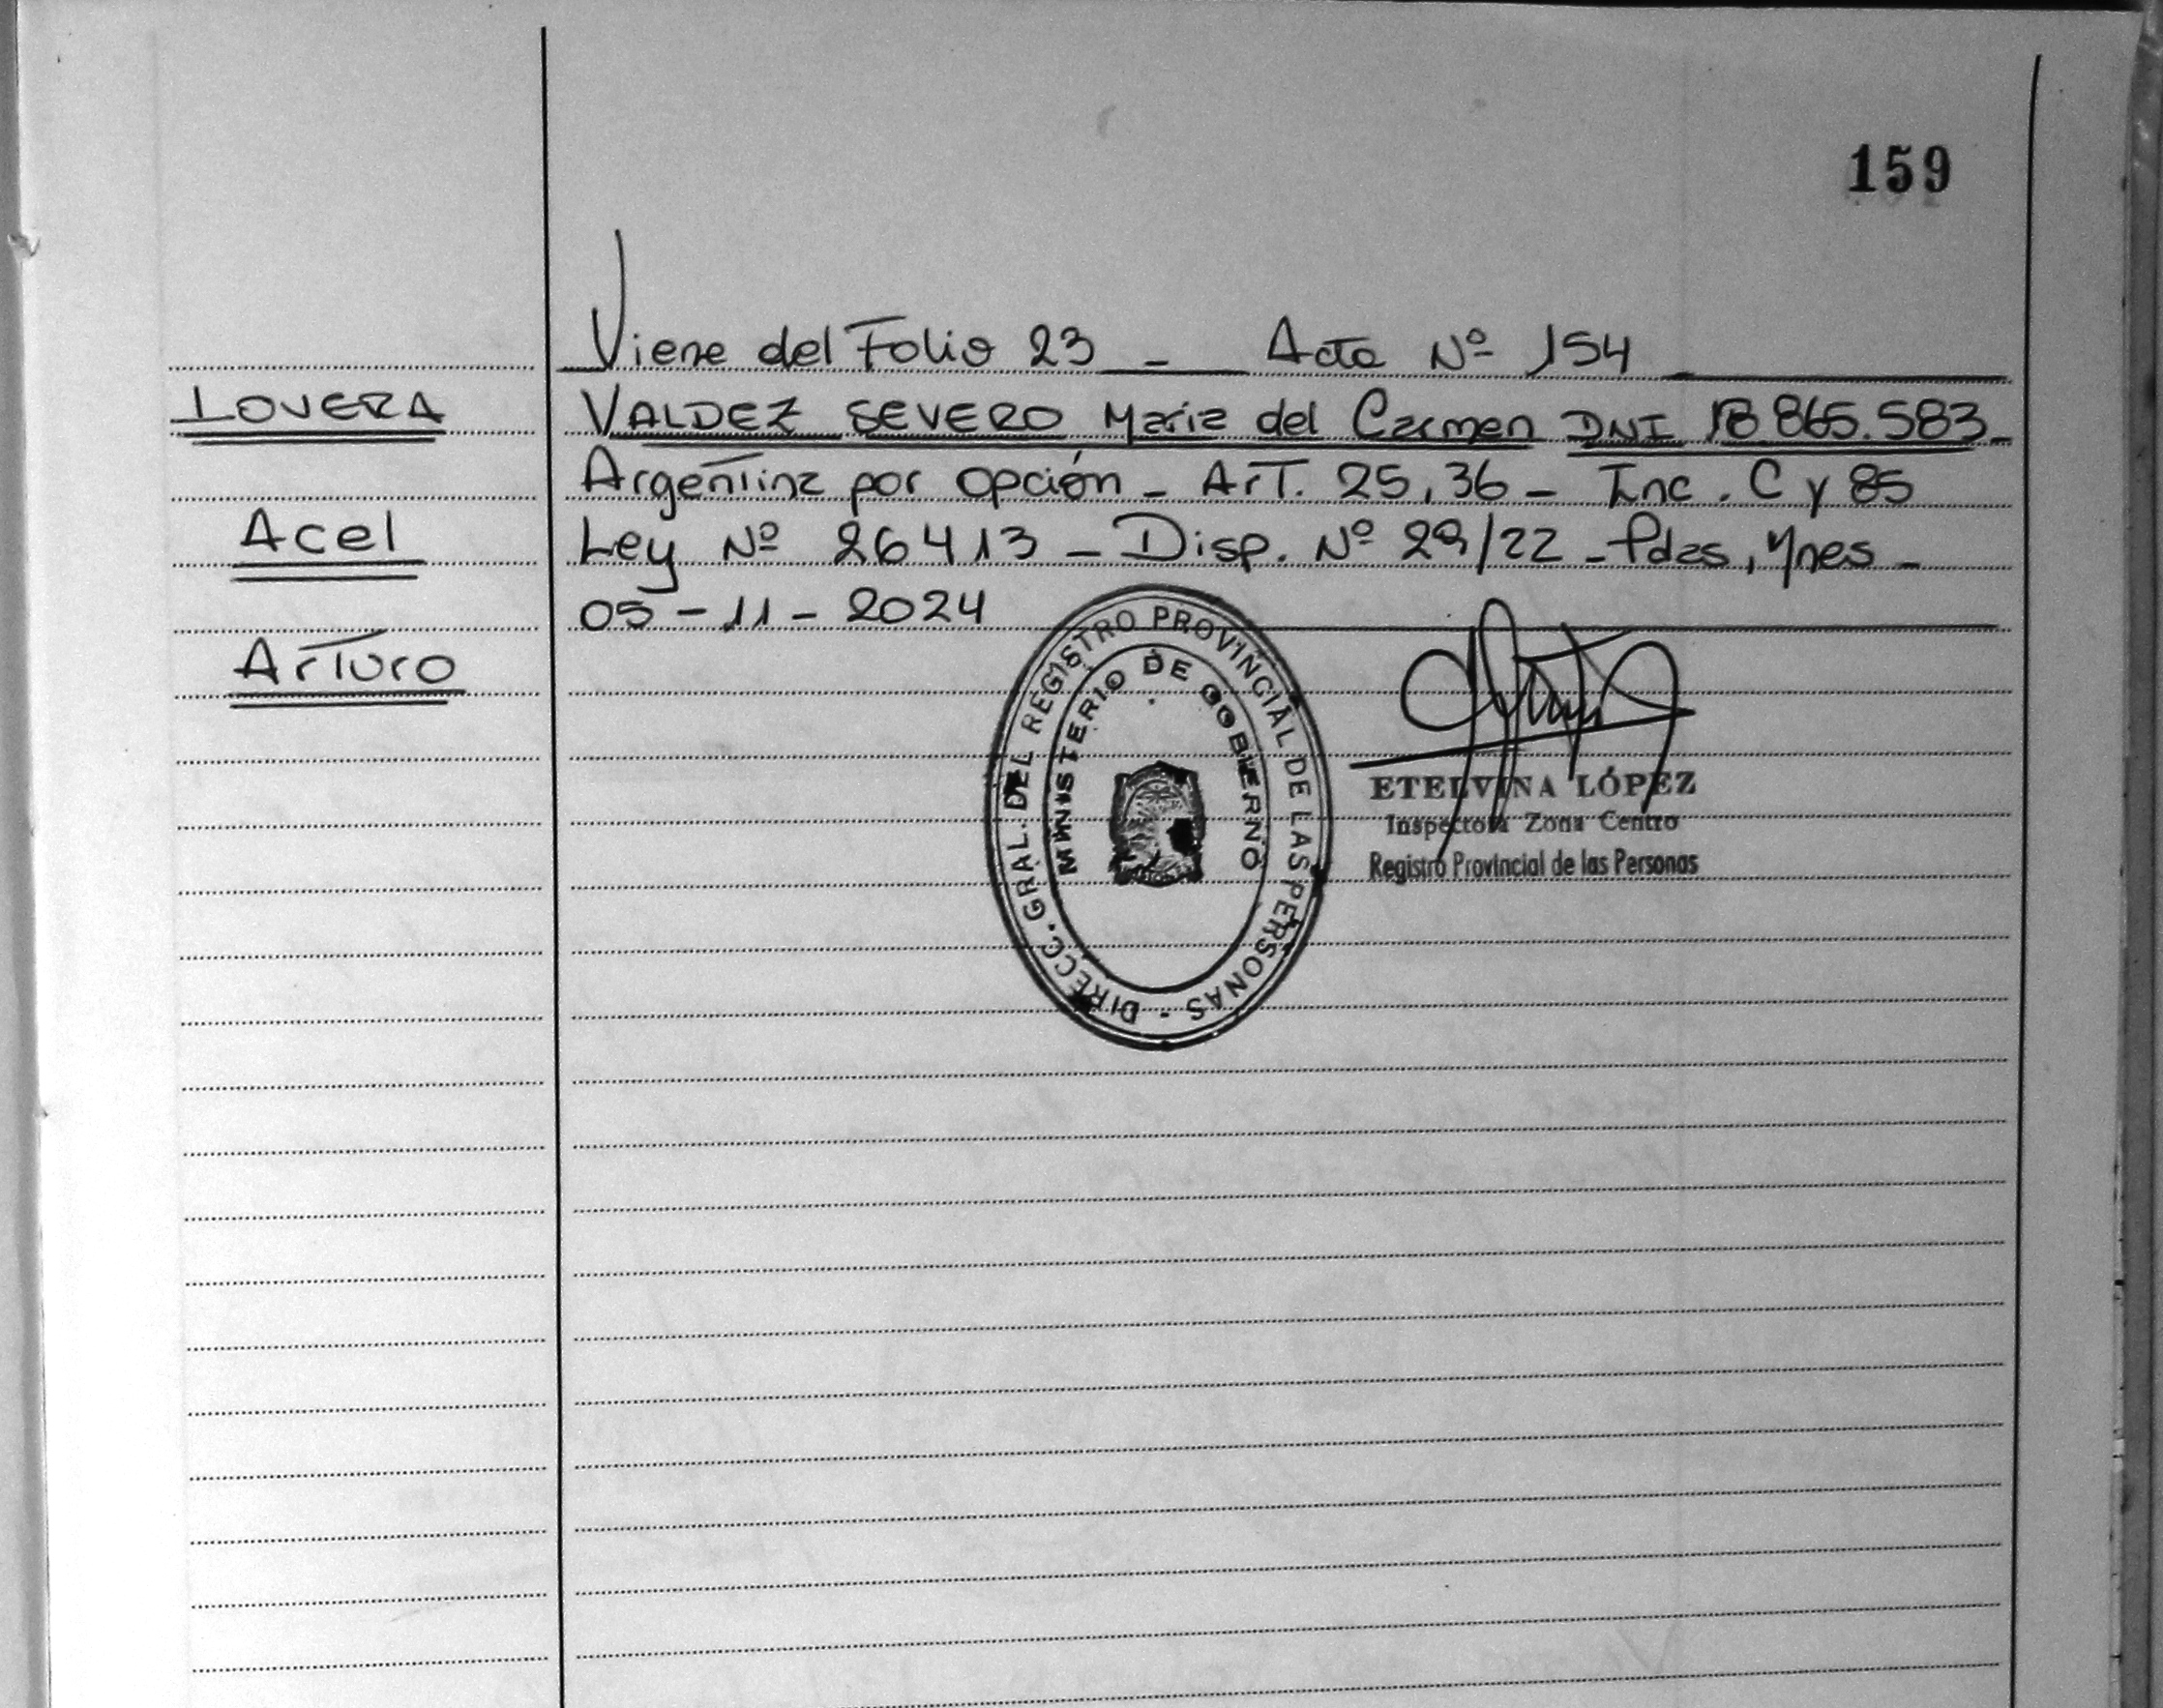 159
Viene del Folio 23 - Acta Nº 154
LOVERA
VALDEZ SEVERO Maria del Carmen DNI 18.865.583-
Argentina por opción - Art. 25, 36 - Inc. C y 85
Acel
Ley Nº 26413 - Disp. Nº 29/22 - Pdas, Mnes -
05-11-2024
Arturo
DIRECC. GRAL. DEL REGISTRO PROVINCIAL DE LAS PERSONAS -
MINISTERIO DE GOBIERNO
ETELVINA LÓPEZ
Inspectora Zona Centro
Registro Provincial de las Personas